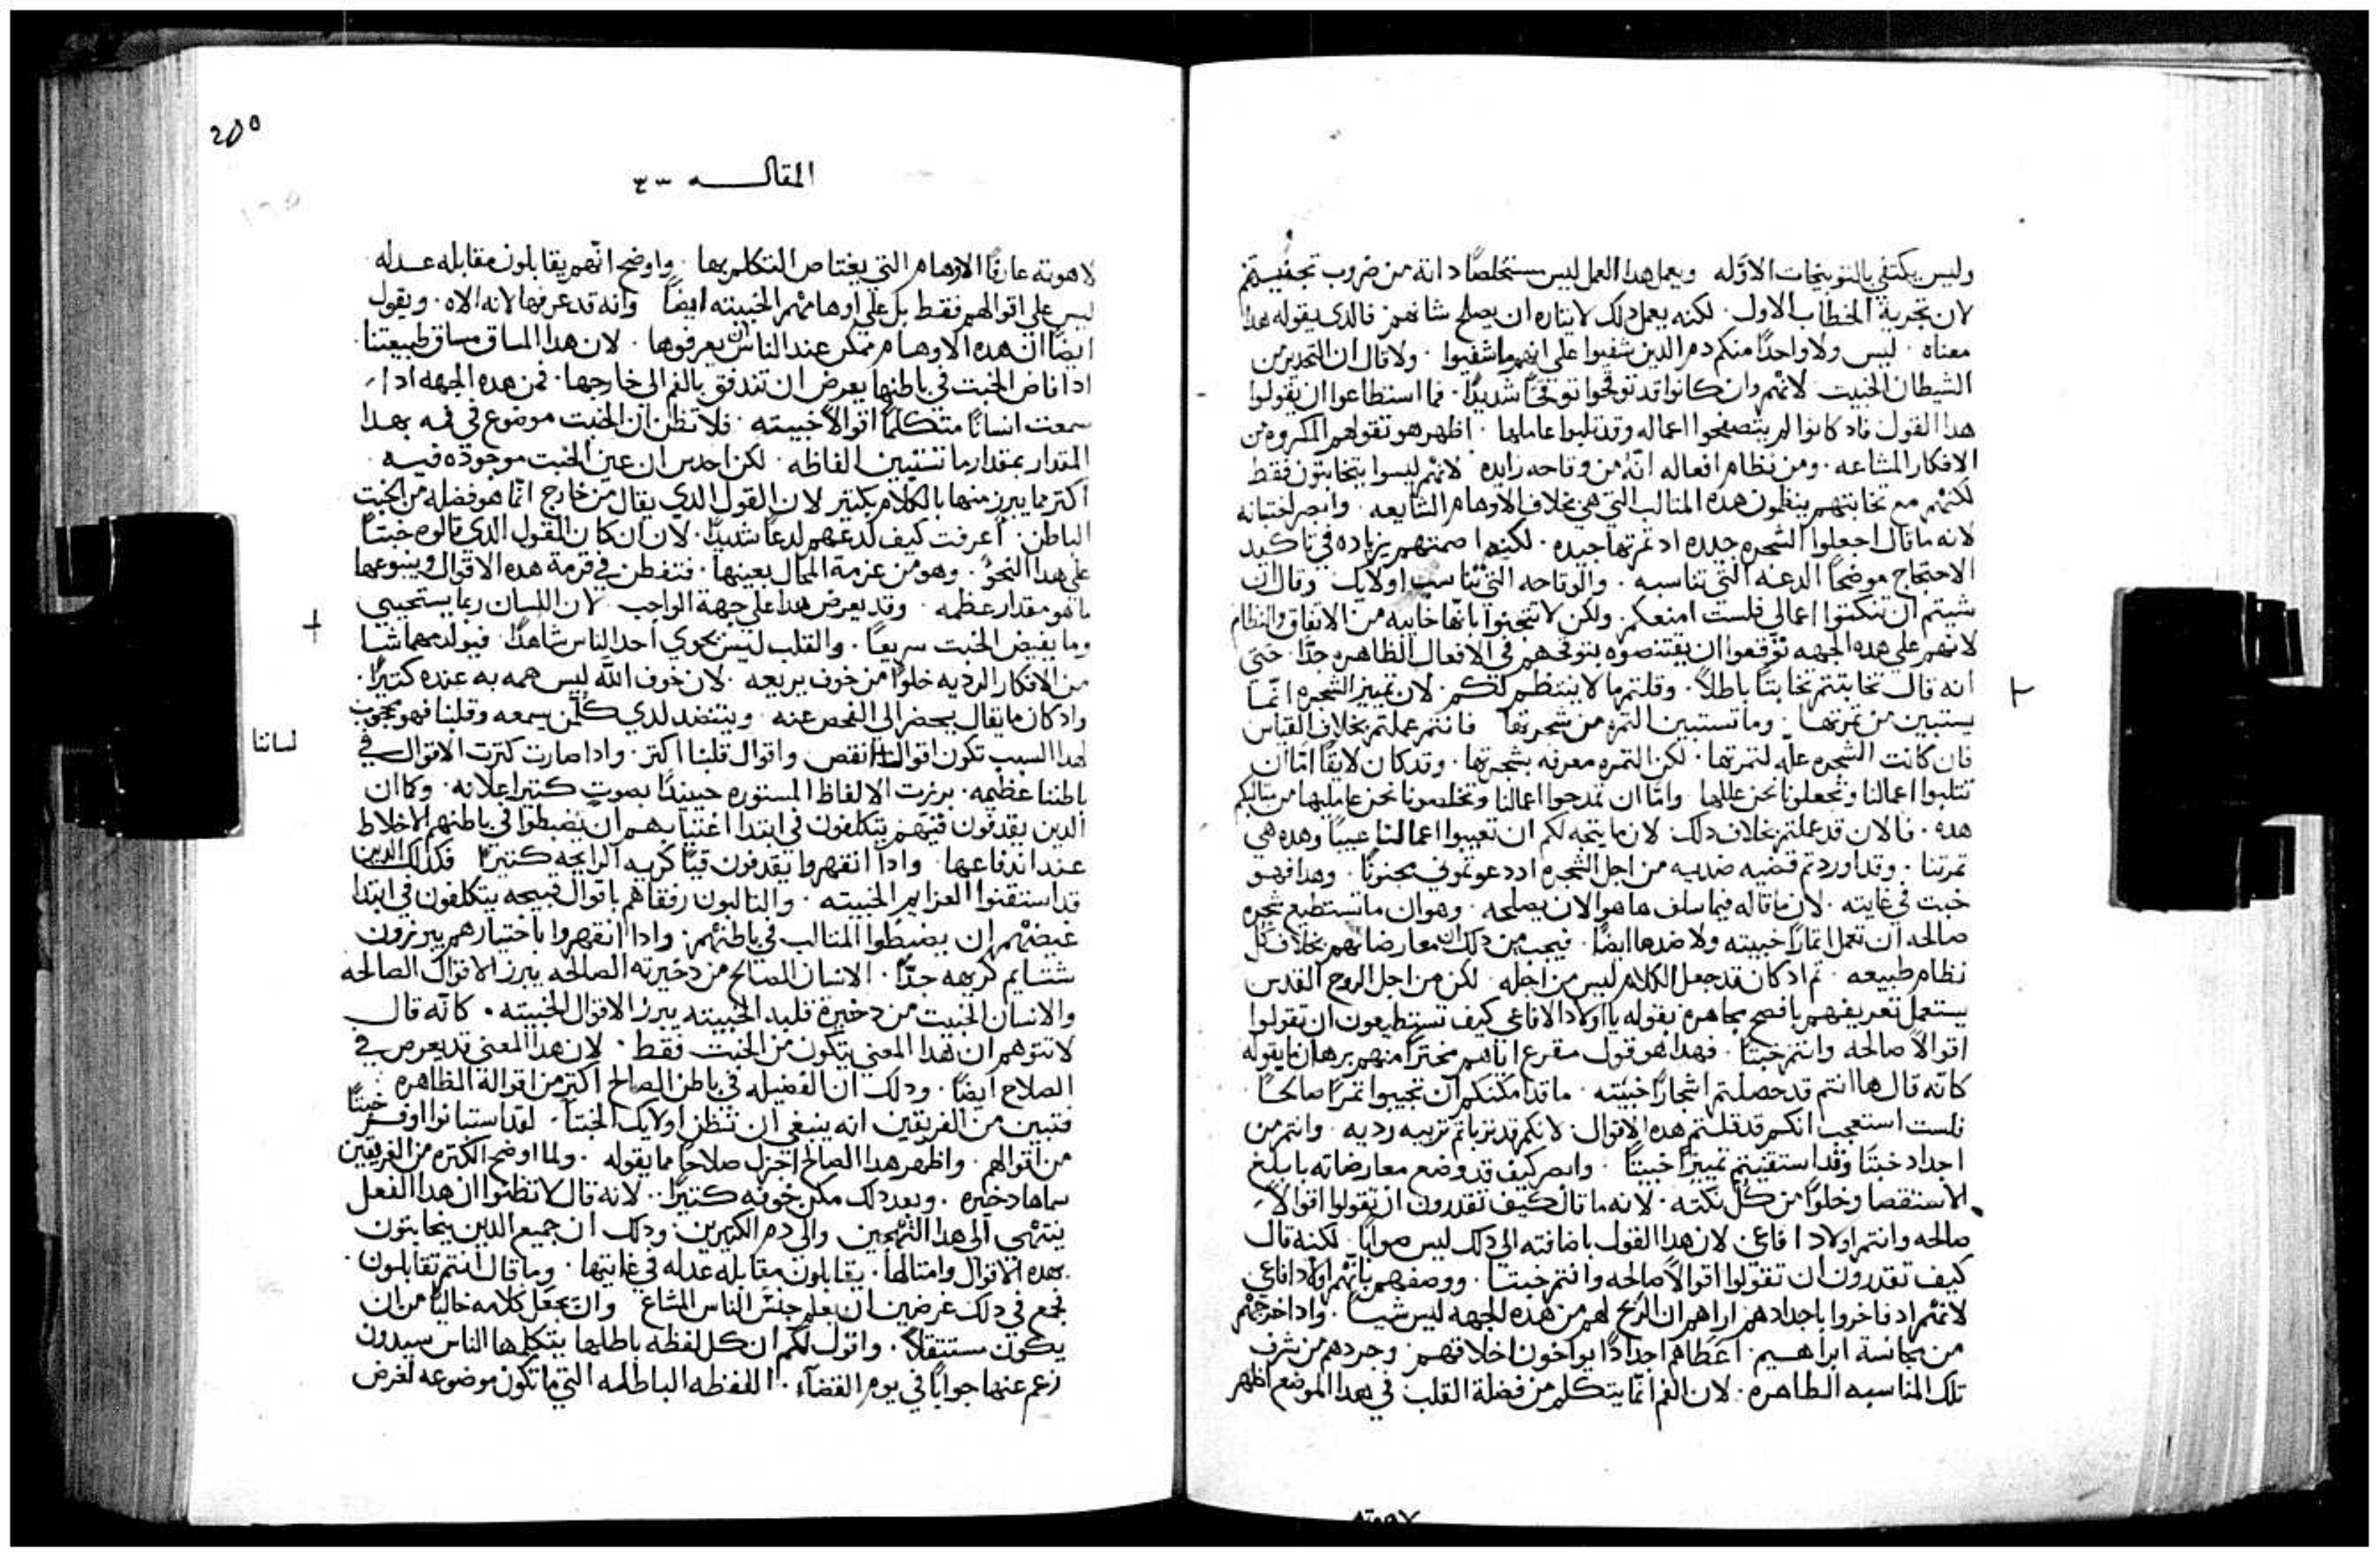 وليس يكتفي بالتوبيخات الاوله ويعمل هدا العمل ليس مستخلصًا داته من ضروب تجنيهم
لان تجربة الخطاب الاول لكنه يعمل دلك لايتاره ان يصلح شانهم فالدي يقوله هدا
معناه ليس ولا واحدًا منكم دم الدين شفيوا على انهم ما شفيوا ولا قال ان التحدير من
الشيطان الخبيت لانهم وان كانوا قد توقحوا توقحًا شديدًا فما استطاعوا ان يقولوا
هدا القول فاد كانوا لم يتصفحوا اعماله وقد تلبوا عاملها اظهر هو تقولهم المكروه من
الافكار المشاعه ومن نظام افعاله انه من وقاحه زايده لانهم ليسوا يتخابتون فقط
لكنهم مع تخابتهم ينظمون هده المتالب التي هي بخلاف الاوهام الشايعه وابصر
لانه ما قال اجعلوا الشجره جيده اد تمرتها جيده لكنه اصمتهم بزياده في تاكيد
الاحتجاج موضحًا الدعه التي تناسبه والوقاحه التي تناسب اولايك وقال ان
شيتم ان تنكتوا اعمالي فلست امنعكم ولكن لا تتجنوا بانها خاييه من الاتفاق والنظام
لانهم على هده الجهه توقعوا ان يقتنصوه بتوقحهم في الافعال الظاهره جدًا حتى
انه قال تخابتتم تخابتًا باطلاً وقلتم ما لا ينتظم لكم لان تمييز الشجره انما
يستبين من تمرتها وما تستبين التمره من شجرتها فانتم عملتم بخلاف القياس
فان كانت الشجره علّه لتمرتها لكن التمره معرفه بشجرتها وقد كان لايقًا اما ان
تتلبوا اعمالنا وتجعلونا نحن عللها واما ان تمدحوا اعمالنا وتخلصونا نحن عامليها من متالبكم
هده فالان قد عملتم بخلاف دلك لان ما يتجه لكم ان تعيبوا اعمالنا عيبًا وهده هي
تمرتنا وقد اوردتم قضيه ضديه من اجل الشجره اد دعوتموني مجنونًا وهدا فهو
خبت في غايته لان ما قاله فيما سلف ها هو الان يصلحه وهو ان ما تستطيع شجره
صالحه ان تعمل اتمارًا خبيته ولا ضدها ايضًا فيجب من دلك ان معارضاتهم بخلاف كل
نظام طبيعه تم اد كان قد جعل الكلام ليس من اجله لكن من اجل الروح القدس
يستعمل تعريفهم بافصح مجاهره بقوله يا اولاد الافاعي كيف تستطيعون ان تقولوا
اقوالاً صالحه وانتم خبتا فهدا هو قول مقرع اياهم مخترًا منهم برهان ما يقوله
كانه قال ها انتم قد حصلتم اشجارًا خبيته ما قد امكنكم ان تجيبوا تمرًا صالحًا
فلست استعجب انكم قد قلتم هده الاقوال لانكم قد تربيتم تربيه رديه وانتم من
اجداد خبتا وقد استقنيتم تمييزًا خبيتًا وابصر كيف قد وضع معارضاته بابلغ
الاستقصا وخلوًا من كل نكته لانه ما قال كيف تقدرون ان تقولوا اقوالاً
صالحه وانتم اولاد افاعي لان هدا القول باضافته الى دلك ليس صوابًا لكنه قال
كيف تقدرون ان تقولوا اقوالاً صالحه وانتم خبتا ووصفهم بانهم اولاد افاعي
لانهم اد فاخروا باجدادهم اراهم ان الربح لهم من هده الجهه ليس شيا واد اخرجهم
من مجانسة ابراهيم اعطاهم اجدادًا يواخون اخلاقهم وجردهم من شرف
تلك المناسبه الظاهره لان الفم انما يتكلم من فضلة القلب في هدا الموضع اظهر
٢٥٥
المقالـــه ٤٣
لاهوته عارفًا الاوهام التي يعتاص التكلم بها واوضح انهم يقابلون مقابله عدله
ليس على اقوالهم فقط بل على اوهامهم الخبيته ايضًا وانه قد عرفها لانه الاه ويقول
ايضًا ان هده الاوهام ممكن عند الناس ان يعرفوها لان هدا المساق مساق طبيعتنا
ادا فاض الخبت في باطنها يعرض ان تندفق بالفم الى خارجها فمن هده الجهه ادا
سمعت انسانًا متكلمًا اقوالاً خبيته فلا تظن ان الخبت موضوع في فمه بهدا
المقدار بمقدار ما تستبين الفاظه لكن احدس ان عين الخبت موجوده فيه
اكتر مما يبرز منها بالكلام بكتير لان القول الدي يقال من خارج انما هو فضله من الخبت
الباطن اعرفت كيف لدعهم لدعًا شديدًا لان ان كان القول الدي قالوه خبتا
على هدا النحو وهو من عزمة المحال بعينها فتفطن في قرمة هده الاقوال وينبوعها
ما هو مقدار عظمه وقد يعرض هدا على جهة الواجب لان اللسان ربما يستحيي
وما يفيض الخبت سريعًا والقلب ليس يحوي احد الناس شاهدًا فيولد مهما شا
من الافكار الرديه خلوًا من خوف يريعه لان خوف الله ليس همه به عنده كتيرًا
واد كان ما يقال يحضر الى الفحص عنه وينتضد لدي كل من يسمعه وقلبنا فهو محجوب
لهدا السبب تكون اقوال انقص واقوال قلبنا اكتر وادا صارت كترت الاقوال في
لساننا
باطننا عظيمه برزت الالفاظ المستوره حينيدًا بصوت كتير اعلانه وكما ان
الدين يقدفون قيهم يتكلفون في ابتدا اغتيابهم ان يضبطوا في باطنهم الاخلاط
عند اندفاعها وادا انقهروا يقدفون قيًا كريه الرايحه كتيرًا فكدلك الدين
قد استقنوا العزايم الخبيته والتالبون رفقاهم باقوال قبيحه يتكلفون في ابتدا
غيضهم ان يضبطوا المتالب في باطنهم وادا انقهروا باختيارهم يبرزون
شتايم كريهه جدًا الانسان الصالح من دخيرته الصالحه يبرز الاقوال الصالحه
والانسان الخبيت من دخيرة قلبه الخبيته يبرز الاقوال الخبيته كانه قال
لا تتوهم ان هدا المعنى يتكون من الخبت فقط لان هدا المعنى قد يعرض في
الصلاح ايضًا ودلك ان الفضيله في باطن الصالح اكتر من اقواله الظاهره
فتبين من الفريقين انه ينبغي ان تتظن اولايك الخبتا لقد استبانوا اوفر خبتًا
من اقوالهم واظهر هدا الصالح اجزل صلاحًا مما يقوله ولما اوضح الكتره من الفريقين
سماها دخيره وبعد دلك مكن خوفه كتيرًا لانه قال لا تظنوا ان هدا الفعل
ينتهي الى هدا التهجين والى دم الكتيرين ودلك ان جميع الدين يتخابتون
بهده الاقوال وامتالها يقابلون مقابله عدله في غايتها وما قال انتم تقابلون
فجمع في دلك غرضين ان يعلم جنس الناس المشاع وان يجعل كلامه خاليًا من ان
يكون مستتقلاً واقول لكم ان كل لفظه باطله يتكلمها الناس سيدون
زعم عنها جوابًا في يوم القضاء اللفظه الباطله التي ما تكون موضوعه لغرض